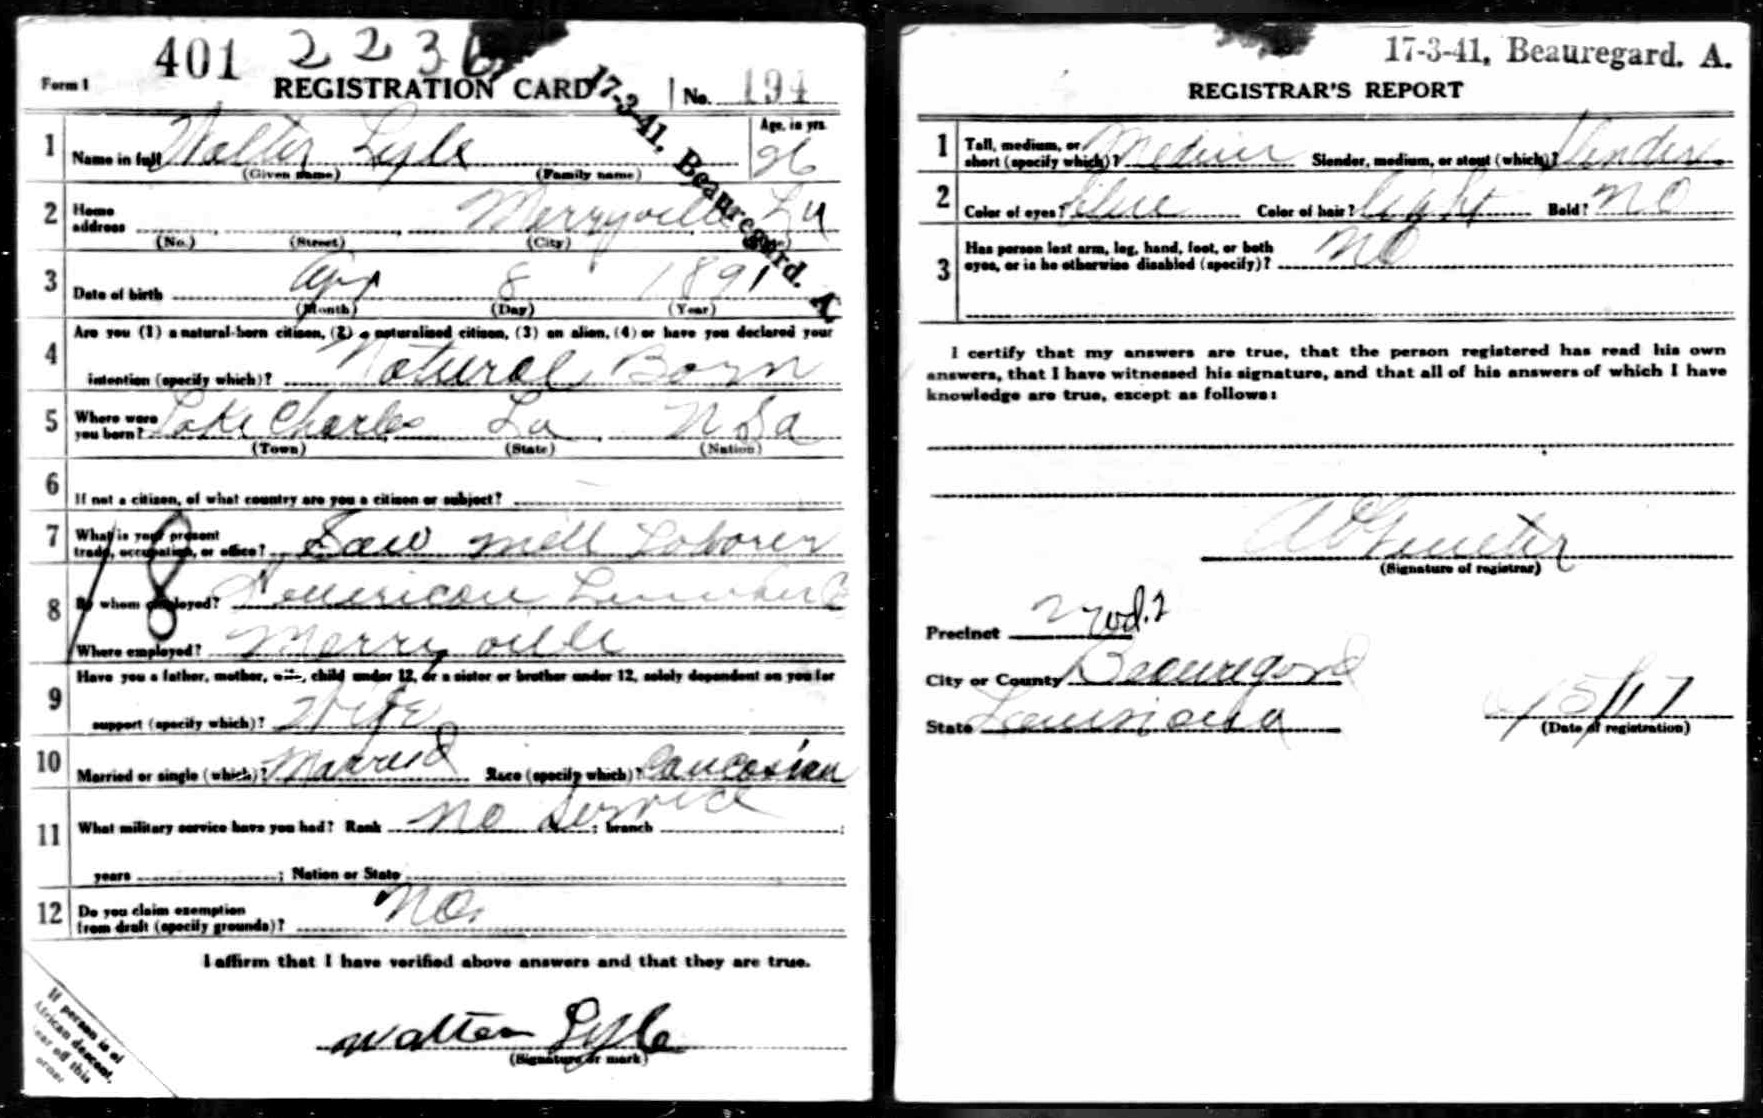 401 2236
Form 1 REGISTRATION CARD No. 194
17-3-41, Beauregard. A.
1 Name in full Walter Lyle Age, in yrs. 26
(Given name) (Family name)
2 Home address Merryville La
(No.) (Street) (City) (State)
3 Date of birth Apr 8 1891
(Month) (Day) (Year)
Are you (1) a natural-born citizen, (2) a naturalized citizen, (3) an alien, (4) or have you declared your
4 intention (specify which)? Natural Born
5 Where were you born? Lake Charles La USa
(Town) (State) (Nation)
6 If not a citizen, of what country are you a citizen or subject?
7 What is your present trade, occupation, or office? Saw mill Laborer
18
8 By whom employed? American Lumber C
Where employed? Merryville
Have you a father, mother, wife, child under 12, or a sister or brother under 12, solely dependent on you for
9 support (specify which)? Wife
10 Married or single (which)? Married Race (specify which)? Caucasian
11 What military service have you had? Rank no service ; branch ;
years ; Nation or State
12 Do you claim exemption from draft (specify grounds)? No.
I affirm that I have verified above answers and that they are true.
Walter Lyle
(Signature or mark)
If person is of
African descent,
tear off this
corner
17-3-41, Beauregard. A.
REGISTRAR'S REPORT
1 Tall, medium, or short (specify which)? Medium Slender, medium, or stout (which)? Slender
2 Color of eyes? blue Color of hair? light Bald? no
3 Has person lost arm, leg, hand, foot, or both eyes, or is he otherwise disabled (specify)? no
I certify that my answers are true, that the person registered has read his own
answers, that I have witnessed his signature, and that all of his answers of which I have
knowledge are true, except as follows:
(Signature of registrar)
Precinct 2
City or County Beauregard
State Louisiana 6/5/17
(Date of registration)